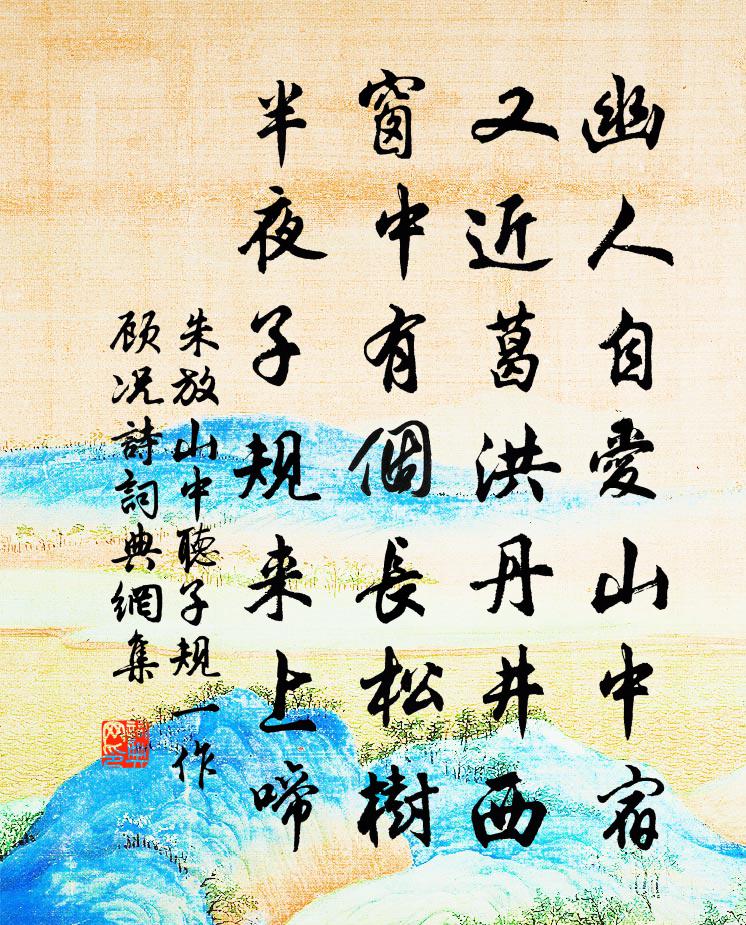 幽人自愛山中宿
又近葛洪丹井西
窗中有個長松樹
半夜子規来上啼
朱放山中聽子規一作
顾况詩詞典網集